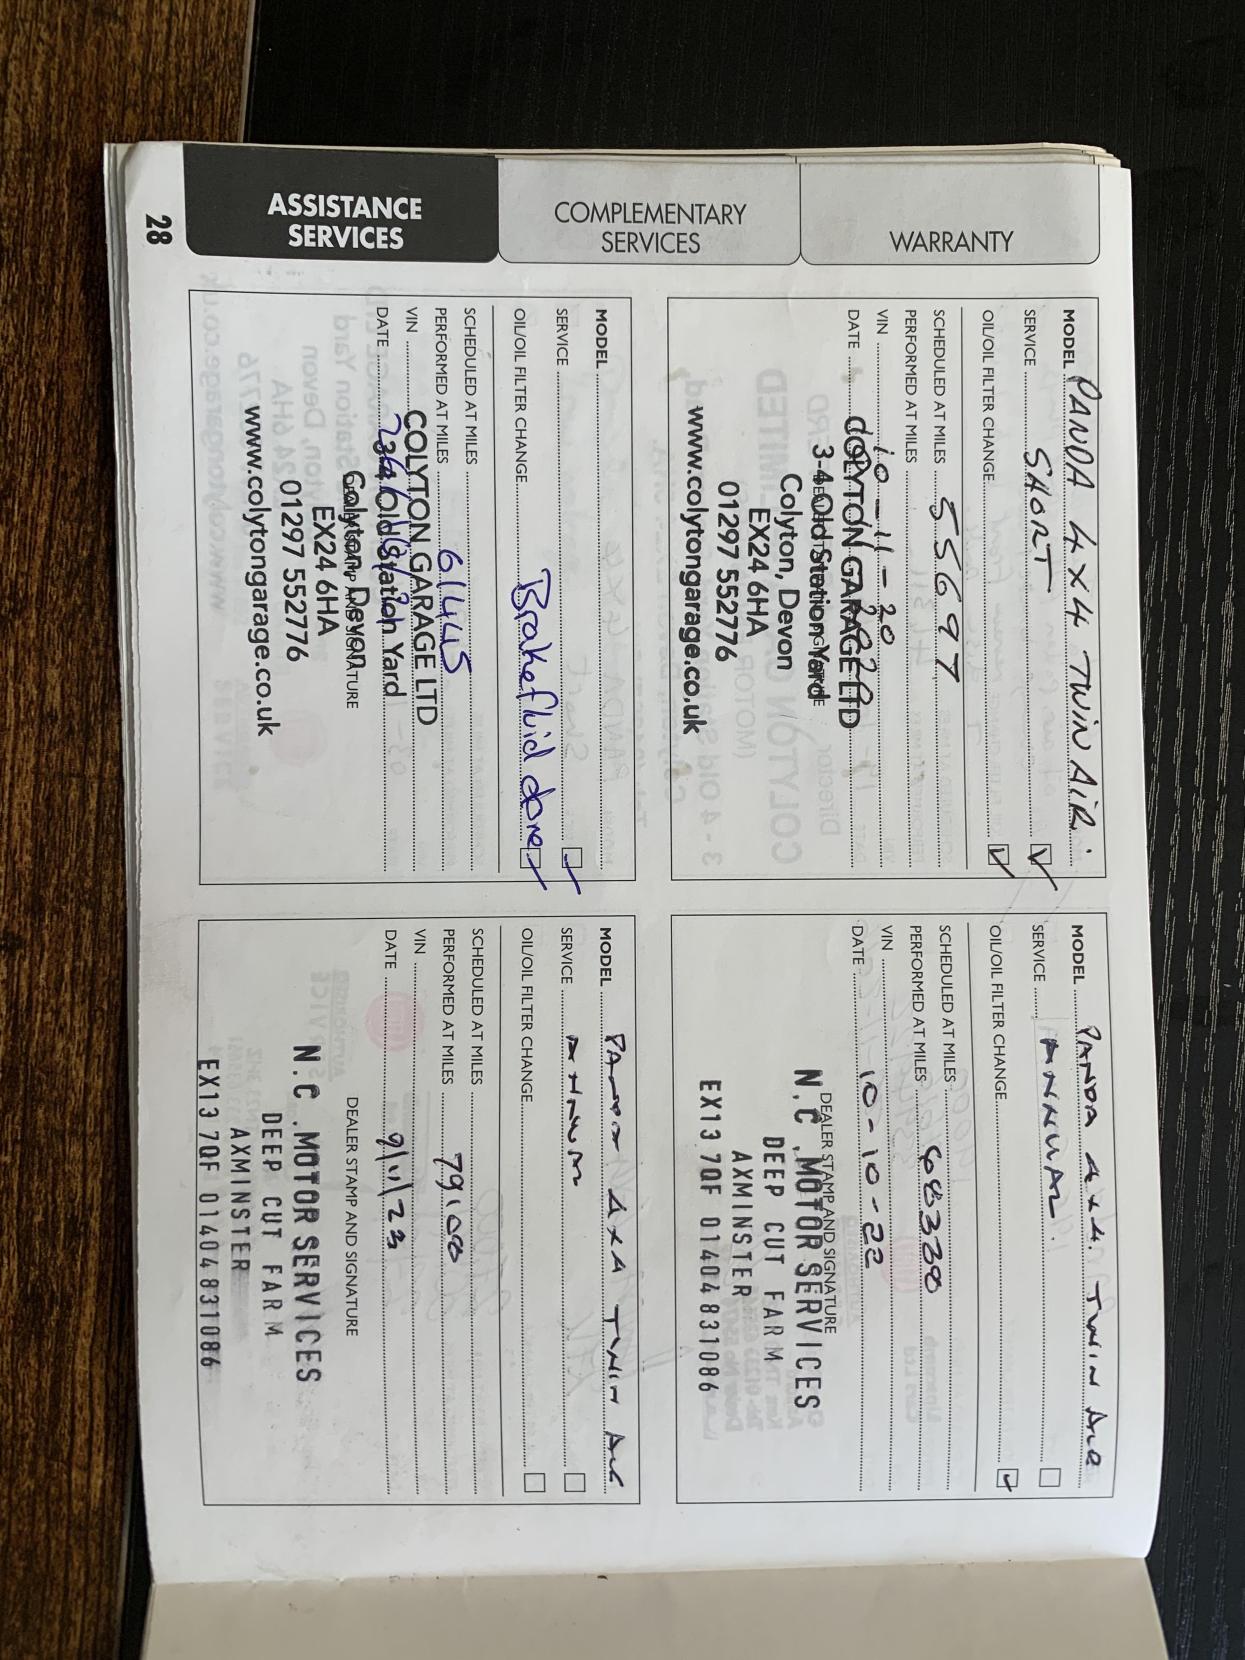 WARRANTY
COMPLEMENTARY
SERVICES
ASSISTANCE
SERVICES
28
MODEL PANDA 4X4 TWIN AIR.
SERVICE SHORT
OIL/OIL FILTER CHANGE
SCHEDULED AT MILES 55697
PERFORMED AT MILES
VIN 10-11-20
DATE
COLYTON GARAGE LTD
3-4 Old Station Yard
Colyton, Devon
EX24 6HA
01297 552776
www.colytongarage.co.uk
MODEL PANDA 4x4. TWIN AIR
SERVICE ANNUAL.
OIL/OIL FILTER CHANGE
SCHEDULED AT MILES
PERFORMED AT MILES 68338
VIN
DATE 10-10-22
DEALER STAMP AND SIGNATURE
N.C. MOTOR SERVICES
DEEP CUT FARM
AXMINSTER
EX13 7QF 01404 831086
MODEL
SERVICE
OIL/OIL FILTER CHANGE Brake fluid done
SCHEDULED AT MILES
PERFORMED AT MILES 61445
VIN
DATE
COLYTON GARAGE LTD
3-4 Old Station Yard
Colyton, Devon
DEALER STAMP AND SIGNATURE
EX24 6HA
01297 552776
www.colytongarage.co.uk
MODEL PANDA 4x4 TWIN AIR
SERVICE ANNUAL
OIL/OIL FILTER CHANGE
SCHEDULED AT MILES
PERFORMED AT MILES 79108
VIN
DATE 9/11/23
DEALER STAMP AND SIGNATURE
N.C. MOTOR SERVICES
DEEP CUT FARM
AXMINSTER
EX13 7QF 01404 831086